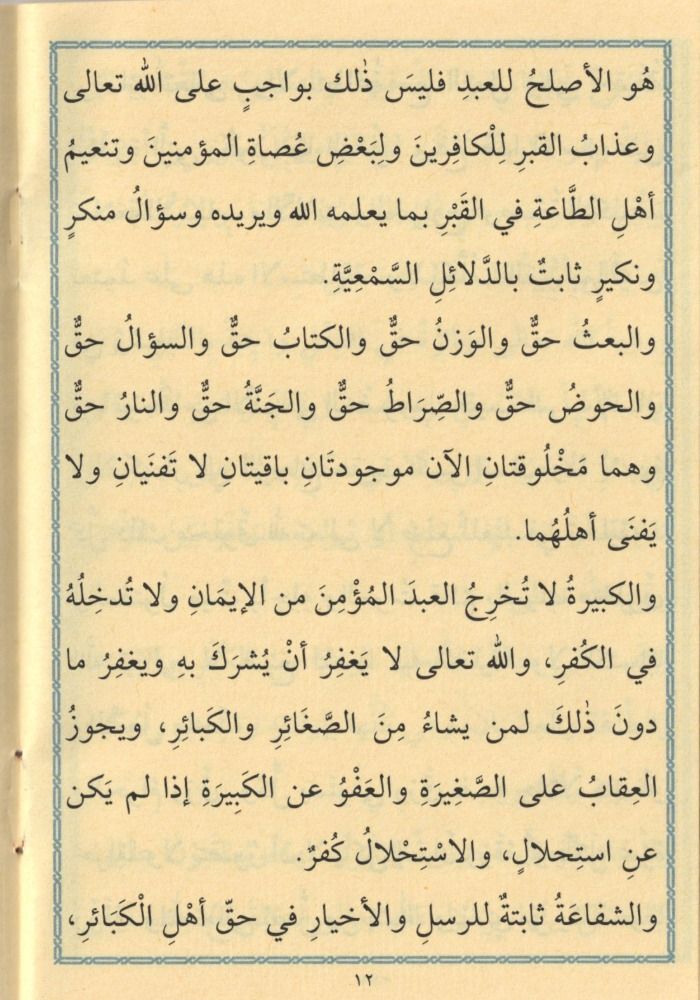 هُو الأصلحُ للعبدِ فليسَ ذٰلك بواجبٍ على الله تعالى
وعذابُ القبرِ لِلْكافِرينَ ولِبَعْضِ عُصاةِ المؤمنينَ وتنعيمُ
أهْلِ الطَّاعةِ في القَبْرِ بما يعلمه الله ويريده وسؤالُ منكرٍ
ونكيرٍ ثابتٌ بالدَّلائِلِ السَّمْعِيَّةِ.
والبعثُ حقٌّ والوَزنُ حقٌّ والكتابُ حقٌّ والسؤالُ حقٌّ
والحوضُ حقٌّ والصِّرَاطُ حقٌّ والجَنَّةُ حقٌّ والنارُ حقٌّ
وهما مَخْلُوقتانِ الآن موجودتَانِ باقيتانِ لا تَفنَيانِ ولا
يَفنَى أهلُهُما.
والكبيرةُ لا تُخرِجُ العبدَ المُؤْمِنَ من الإيمَانِ ولا تُدخِلُهُ
في الكُفرِ، والله تعالى لا يَغفِرُ أنْ يُشرَكَ بهِ ويغفِرُ ما
دونَ ذٰلكَ لمن يشاءُ مِنَ الصَّغَائِرِ والكَبائِرِ، ويجوزُ
العِقابُ على الصَّغِيرَةِ والعَفْوُ عن الكَبِيرَةِ إذا لم يَكن
عنِ استِحلالٍ، والاسْتِحْلالُ كُفرٌ.
والشفاعَةُ ثابتةٌ للرسلِ والأخيارِ في حقّ أهْلِ الْكَبائرِ،
١٢